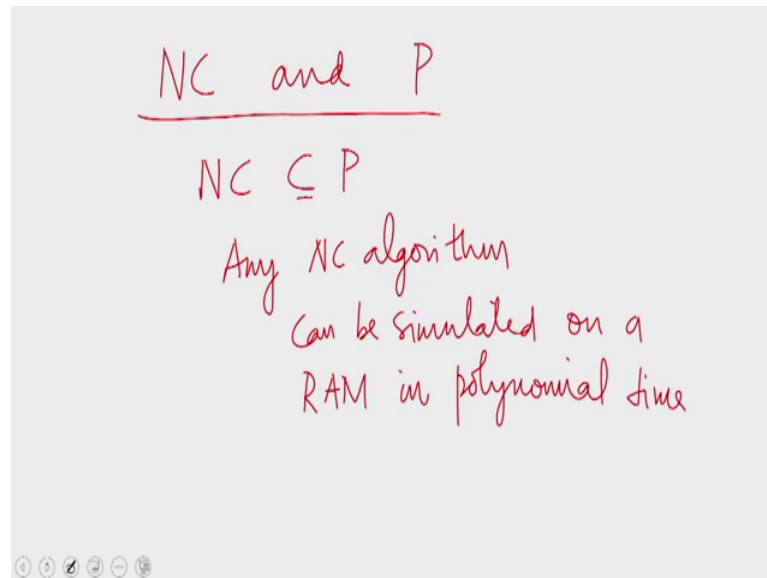 NC and P
NC ⊆ P
Any NC algorithm
can be simulated on a
RAM in polynomial time